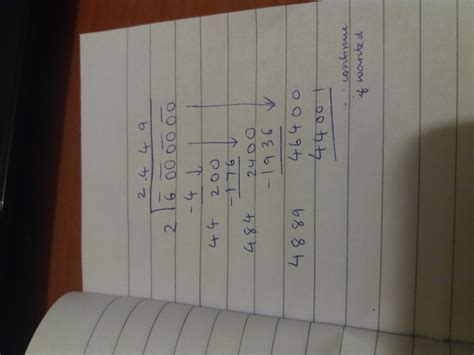 2.449
2 6 00 00 00
-4
44 200
-176
484 2400
-1936
4889 46400
44001
∴ continue
if wanted